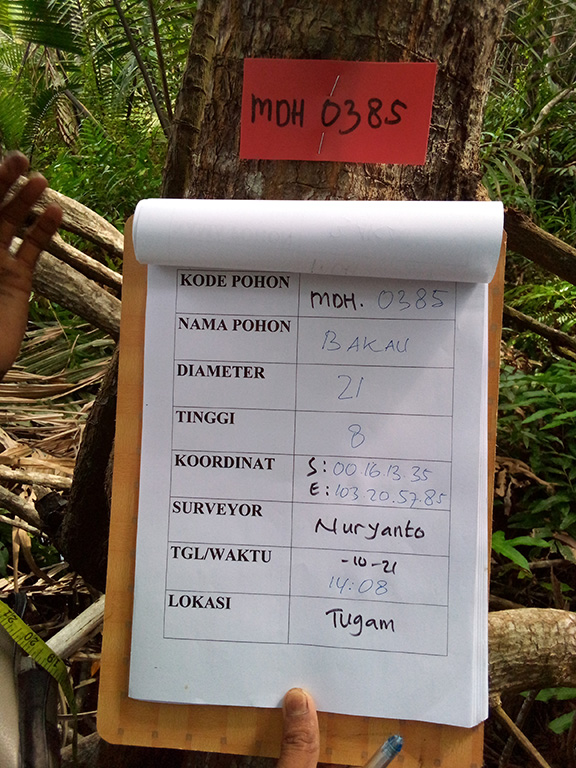 MDH 0385
KODE POHON MDH. 0385
NAMA POHON BAKAU
DIAMETER 21
TINGGI 8
KOORDINAT S: 00.16.13.35
E: 103.20.57.85
SURVEYOR Nuryanto
TGL/WAKTU -10-21
14:08
LOKASI Tugam